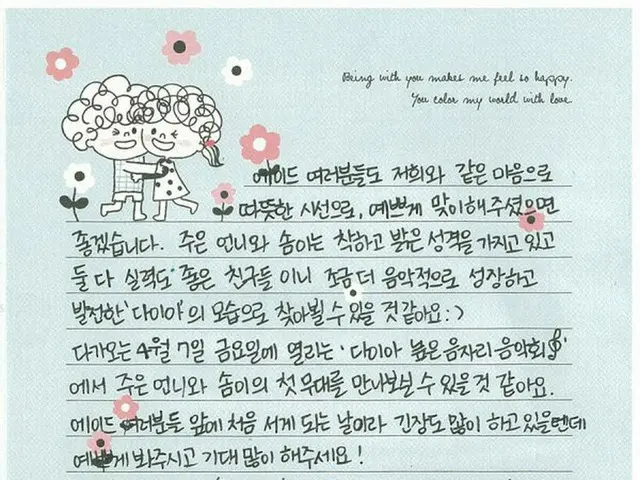 Being with you makes me feel so happy.
You color my world with love.
에이드 여러분들도 저희와 같은 마음으로
따뜻한 시선으로, 예쁘게 맞이해주셨으면
좋겠습니다. 주은 언니와 솜이는 착하고 밝은 성격을 가지고 있고
둘 다 실력도 좋은 친구들 이니 조금 더 음악적으로 성장하고
발전한 '다이아'의 모습으로 찾아뵐 수 있을 것 같아요 : )
다가오는 4월 7일 금요일에 열리는 '다이아 높은음자리 음악회'
에서 주은 언니와 솜이의 첫 무대를 만나보실 수 있을 것 같아요.
에이드 여러분들 앞에 처음 서게 되는 날이라 긴장도 많이 하고 있을텐데
예쁘게 봐주시고 기대 많이 해주세요!